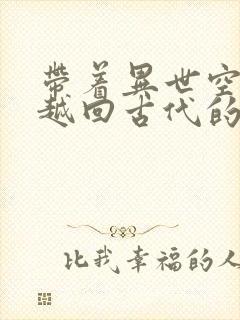 帶着異世空
越回古代的
比我幸福的人